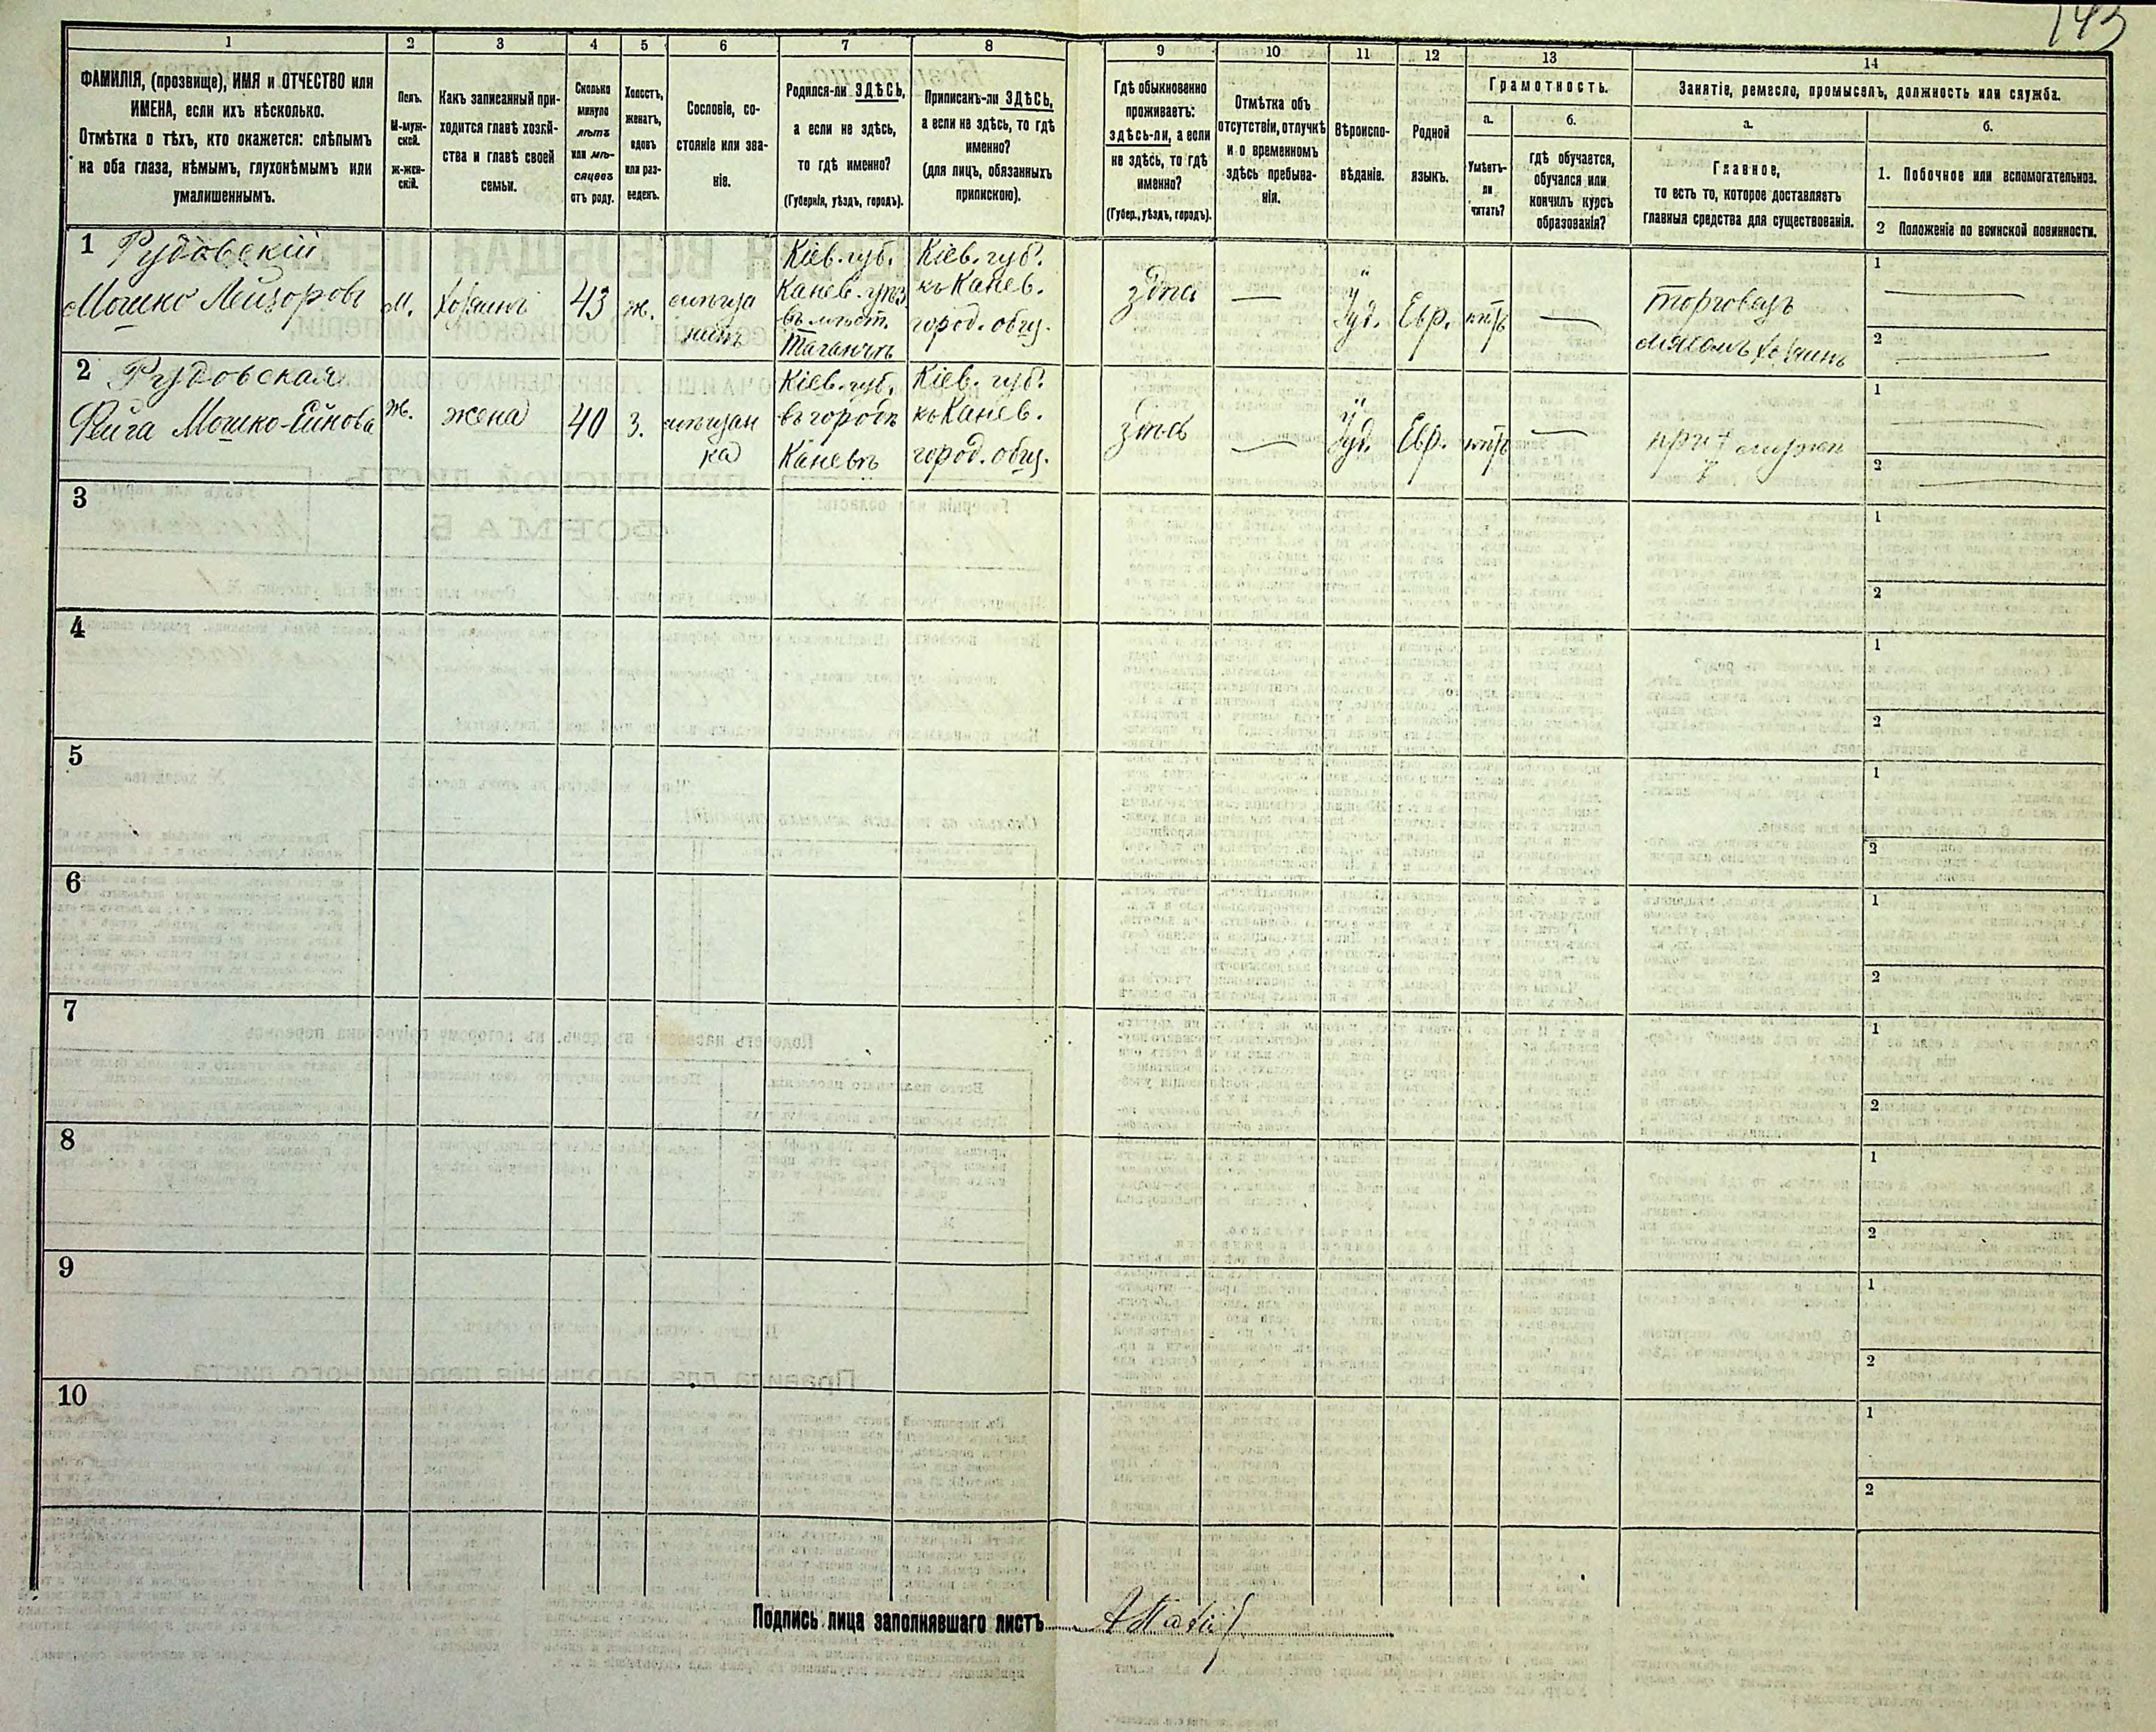 143
1
2
3
4
5
6
7
8
9
10
11
12
13
14
ФАМИЛІЯ, (прозвище), ИМЯ и ОТЧЕСТВО или
ИМЕНА, если ихъ нѣсколько.
Отмѣтка о тѣхъ, кто окажется: слѣпымъ
на оба глаза, нѣмымъ, глухонѣмымъ или
умалишеннымъ.
Полъ.
М-муж-
ской.
ж-жен-
скій.
Какъ записанный при-
ходится главѣ хозяй-
ства и главѣ своей
семьи.
Сколько
минуло
лѣтъ
или мѣ-
сяцевъ
отъ роду.
Холостъ,
женатъ,
вдовъ
или раз-
веденъ.
Сословіе, со-
стояніе или зва-
ніе.
Родился-ли ЗДѢСЬ,
а если не здѣсь,
то гдѣ именно?
(Губернія, уѣздъ, городъ).
Приписанъ-ли ЗДѢСЬ,
а если не здѣсь, то гдѣ
именно?
(для лицъ, обязанныхъ
припискою).
Гдѣ обыкновенно
проживаетъ:
здѣсь-ли, а если
не здѣсь, то гдѣ
именно?
(Губер., уѣздъ, городъ).
Отмѣтка объ
отсутствіи, отлучкѣ
и о временномъ
здѣсь пребыва-
ніи.
Вѣроиспо-
вѣданіе.
Родной
языкъ.
Грамотность.
а.
Умѣетъ-
ли
читать?
б.
гдѣ обучается,
обучался или
кончилъ курсъ
образованія?
Занятіе, ремесло, промыселъ, должность или служба.
а.
Главное,
то есть то, которое доставляетъ
главныя средства для существованія.
б.
1. Побочное или вспомогательное.
2 Положеніе по воинской повинности.
1 Рудовскій
Мошко Лейзоровъ
М.
хозяинъ
43
ж.
мѣща
нинъ
Кіев. губ.
Канев. уѣз.
въ мѣст.
Таганчѣ
Кіев. губ.
къ Канев.
город. общ.
здѣсь
—
Іуд.
Евр.
нѣтъ
—
торговецъ
мясомъ хозяинъ
1 —
2 —
2 Рудовская
Фейга Мошко-Ейнова
Ж.
жена
40
З.
мѣщан
ка
Кіев. губ.
въ городѣ
Каневѣ
Кіев. губ.
къ Канев.
город. общ.
здѣсь
—
Іуд.
Евр.
нѣтъ
—
при мужѣ
1 —
2 —
3
1
2
4
1
2
5
1
2
6
1
2
7
1
2
8
1
2
9
1
2
10
1
2
Подпись лица заполнявшаго листъ